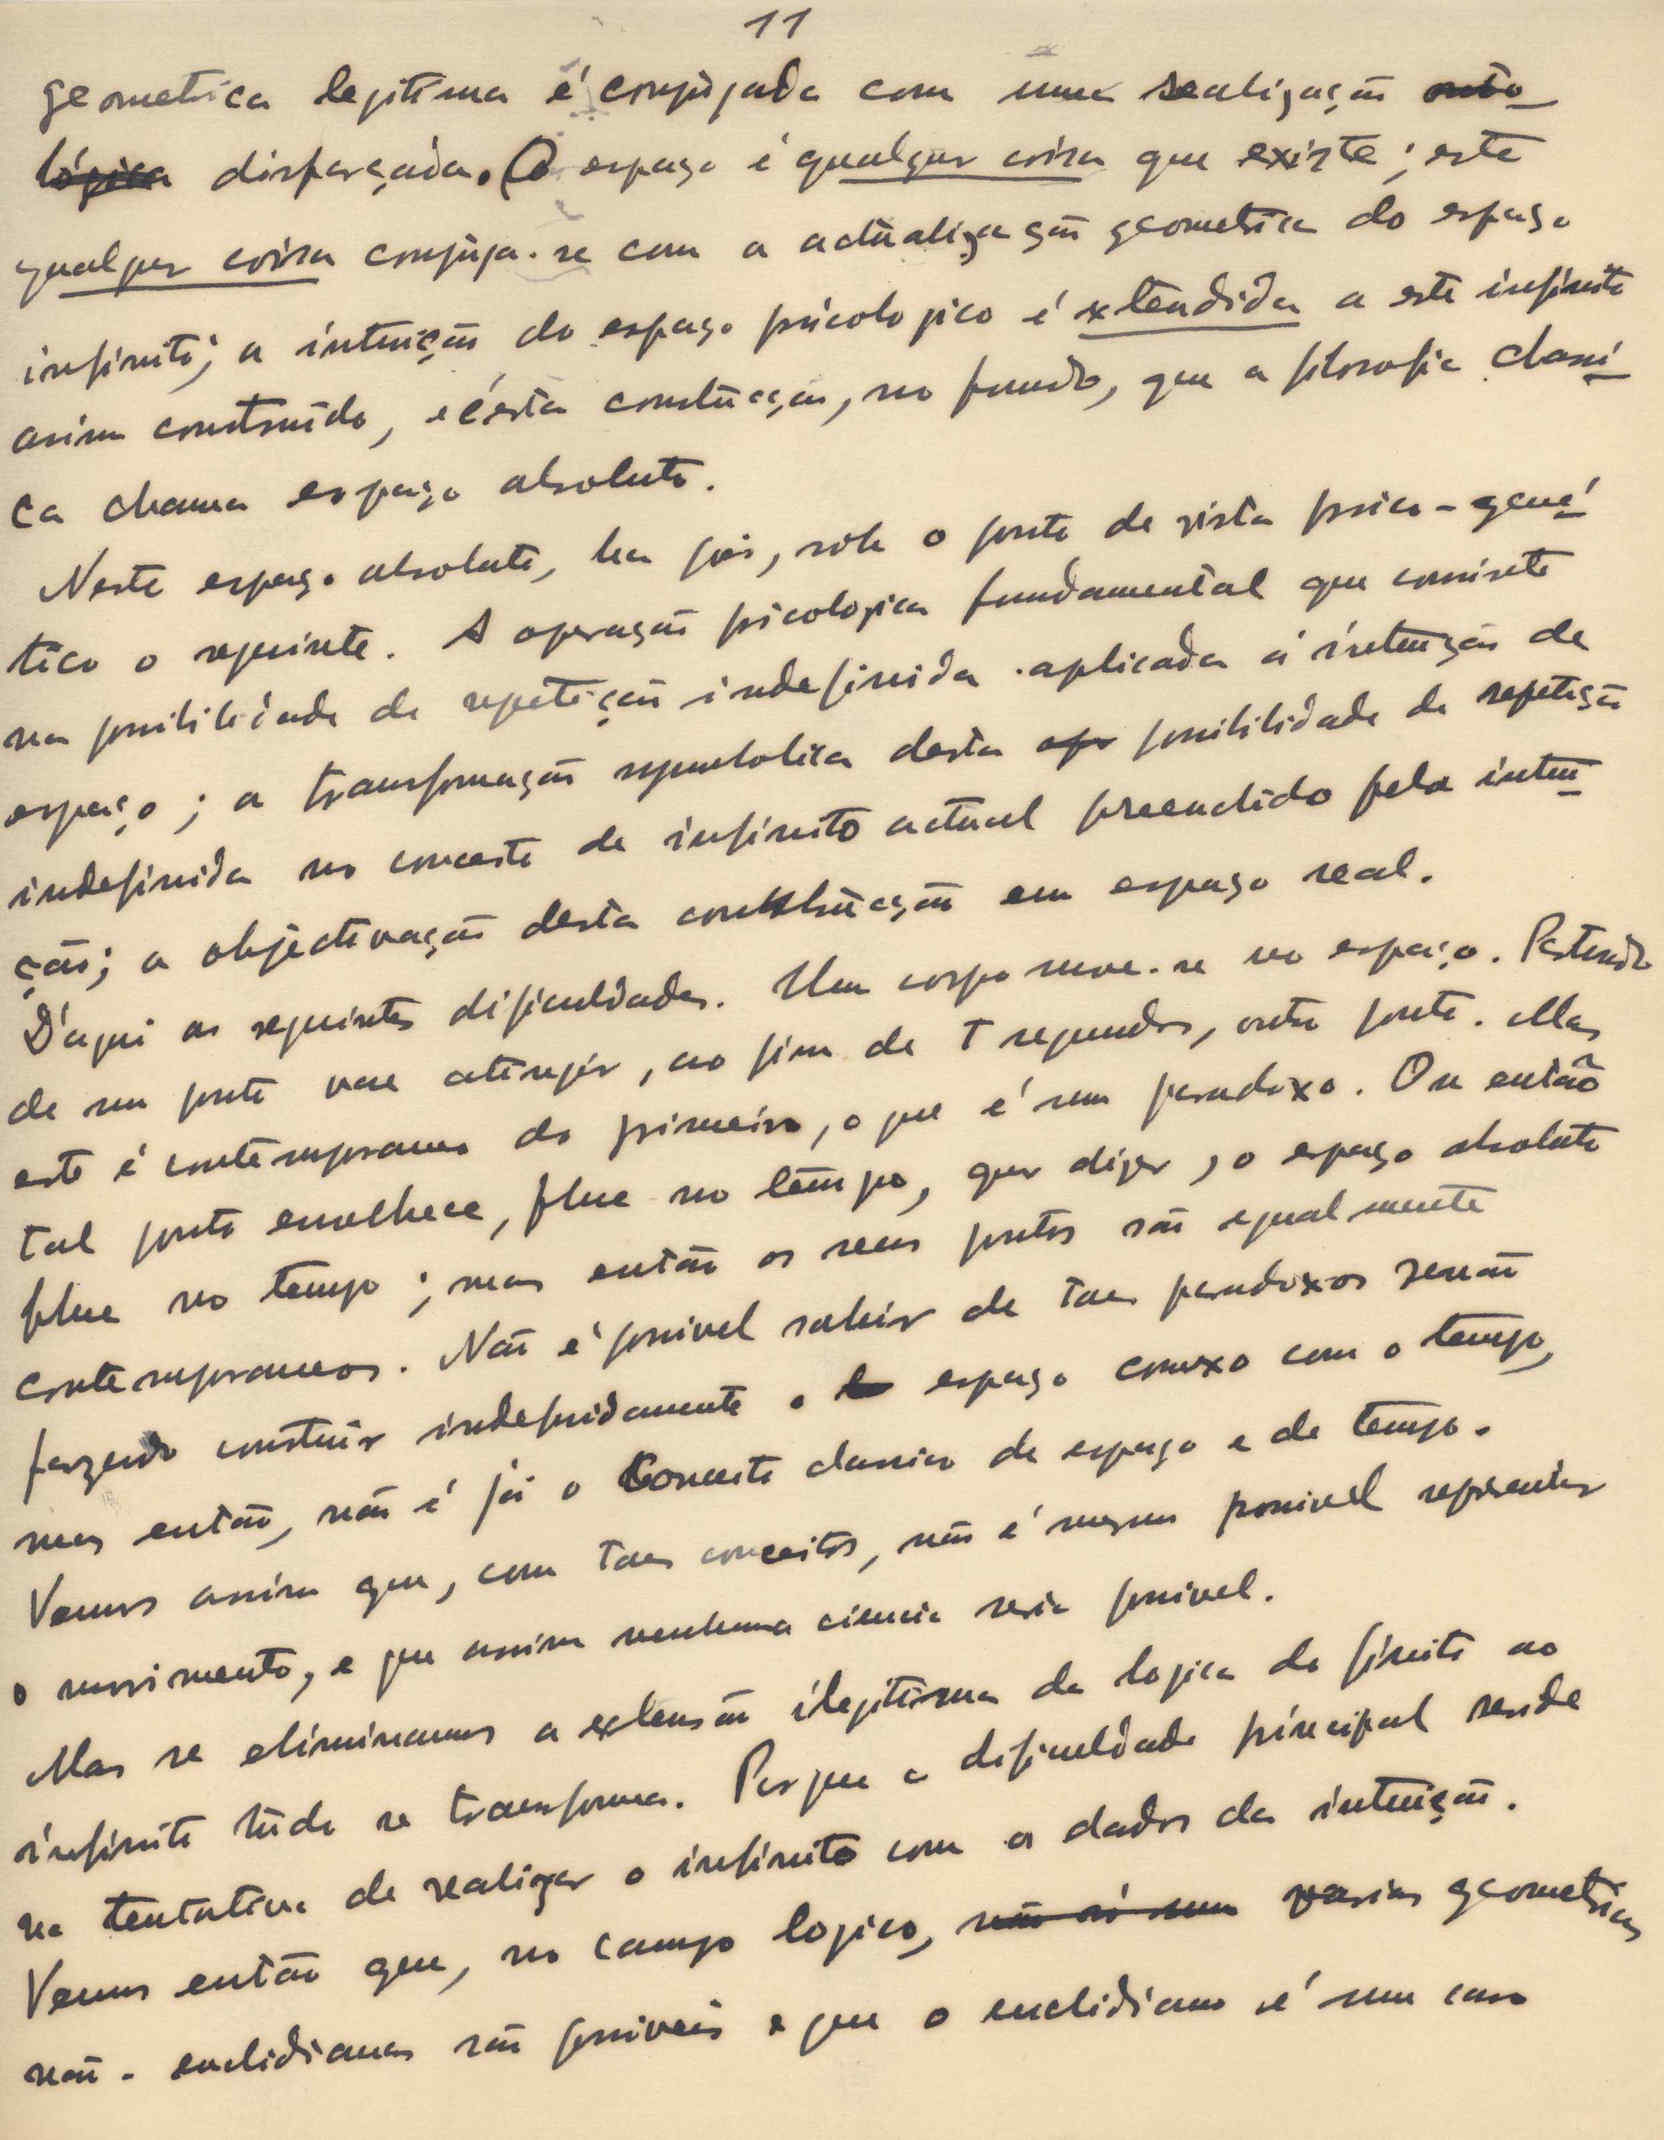 11
geometrica legitima é conjugada com uma realização onto-
lógica disfarçada. O espaço é qualquer coisa que existe; este
qualquer coisa conjuga-se com a actualização geometrica do espaço
infinito; a intuição do espaço psicologico é extendida a este infinito
assim construido, e é esta construcção, no fundo, que a filosofia classi-
ca chama espaço absoluto.
Neste espaço absoluto, ha pois, sob o ponto de vista psico-gené-
tico o seguinte. A operação psicologica fundamental que consiste
na possibilidade de repetição indefinida aplicada á intuição de
espaço; a transformação symbolica desta ope possibilidade de repetição
indefinida no conceito de infinito actual preenchido pela intui-
ção; a objectivação desta construcção em espaço real.
D'aqui as seguintes dificuldades. Um corpo move-se no espaço. Partindo
de um ponto vae atingir, ao fim de T segundos, outro ponto. Mas
este é contemporaneo do primeiro, o que é um paradoxo. Ou então
tal ponto envelhece, flue no tempo, quer dizer, o espaço absoluto
flue no tempo; mas então os seus pontos são egualmente
contemporaneos. Não é possivel sahir de taes paradoxos senão
fazendo construir indefinidamente o espaço connexo com o tempo,
mas então, não é já o Conceito classico de espaço e de tempo.
Vemos assim que, com taes conceitos, não é mesmo possivel representar
o movimento, e que assim nenhuma ciencia seria possivel.
Mas se eliminamos a extensão ilegitima da logica do finito ao
infinito tudo se transforma. Porque a dificuldade principal reside
na tentativa de realizar o infinito com os dados da intuição.
Vemos então que, no campo logico, não só uma varias geometrias
não-euclidianas são possiveis e que o euclidiano é um caso